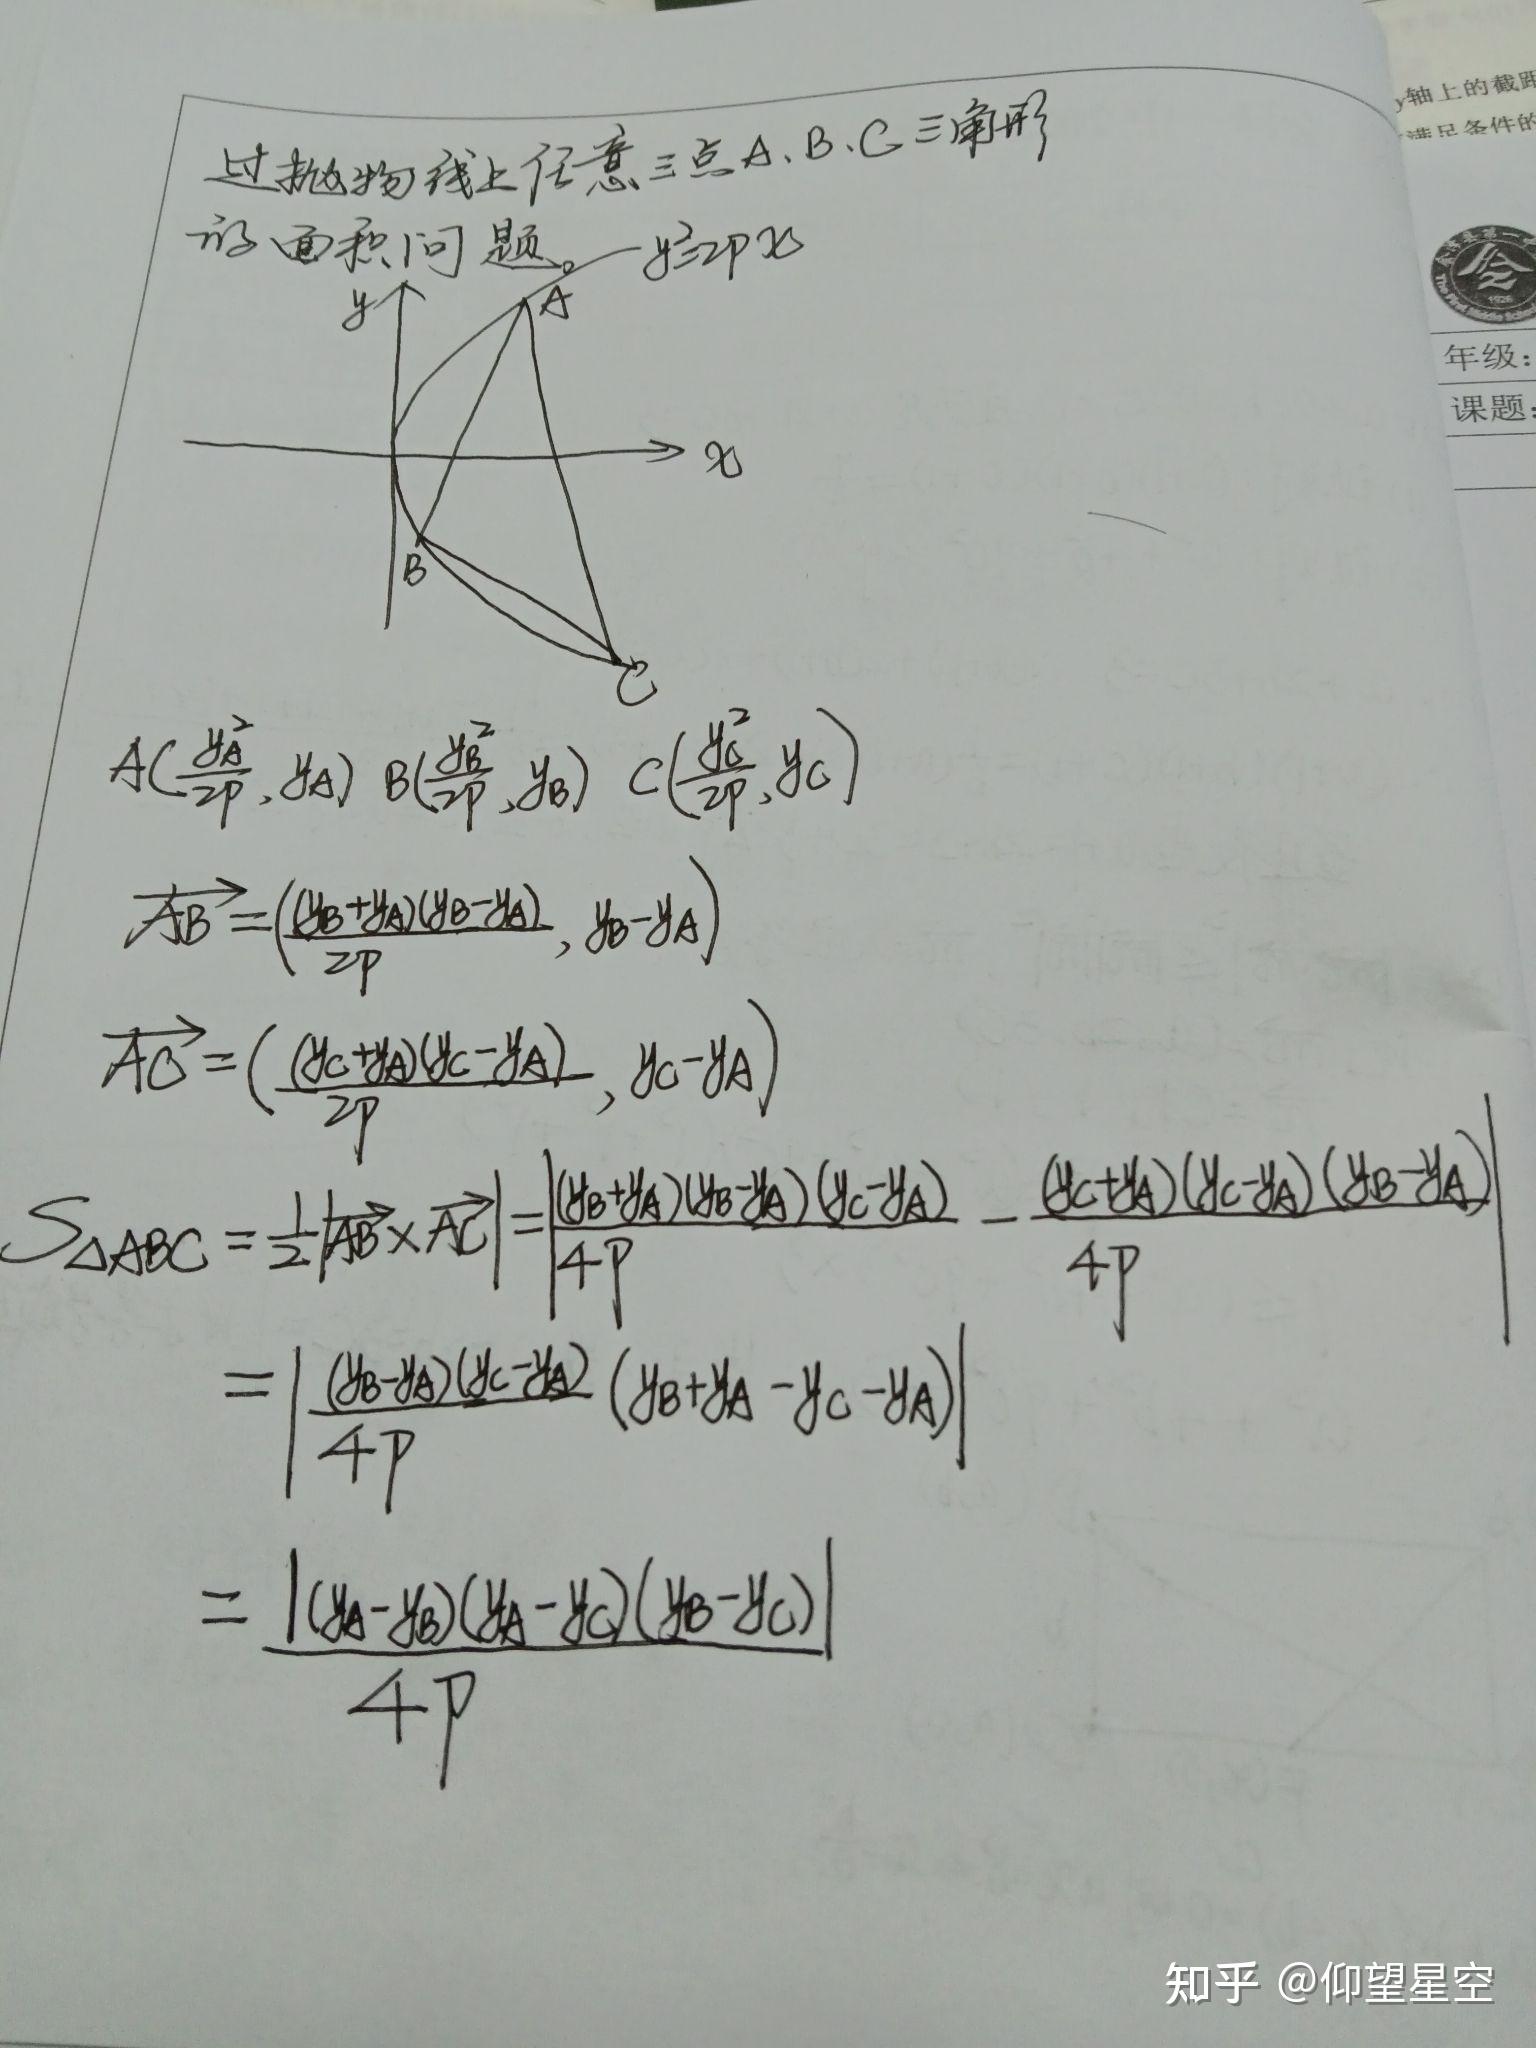 过抛物线上任意三点A、B、C三角形
的面积问题。 y²=2px
y
A
x
B
C
A(y_A²/2p, y_A) B(y_B²/2p, y_B) C(y_C²/2p, y_C)
→AB=((y_B+y_A)(y_B-y_A)/2p, y_B-y_A)
→AC=((y_C+y_A)(y_C-y_A)/2p, y_C-y_A)
S△ABC=1/2|→AB×→AC|=|(y_B+y_A)(y_B-y_A)(y_C-y_A)/4p - (y_C+y_A)(y_C-y_A)(y_B-y_A)/4p|
=|(y_B-y_A)(y_C-y_A)/4p (y_B+y_A-y_C-y_A)|
=|(y_A-y_B)(y_A-y_C)(y_B-y_C)|/4p
y轴上的截距
满足条件的
1926
年级:
课题:
知乎 @仰望星空